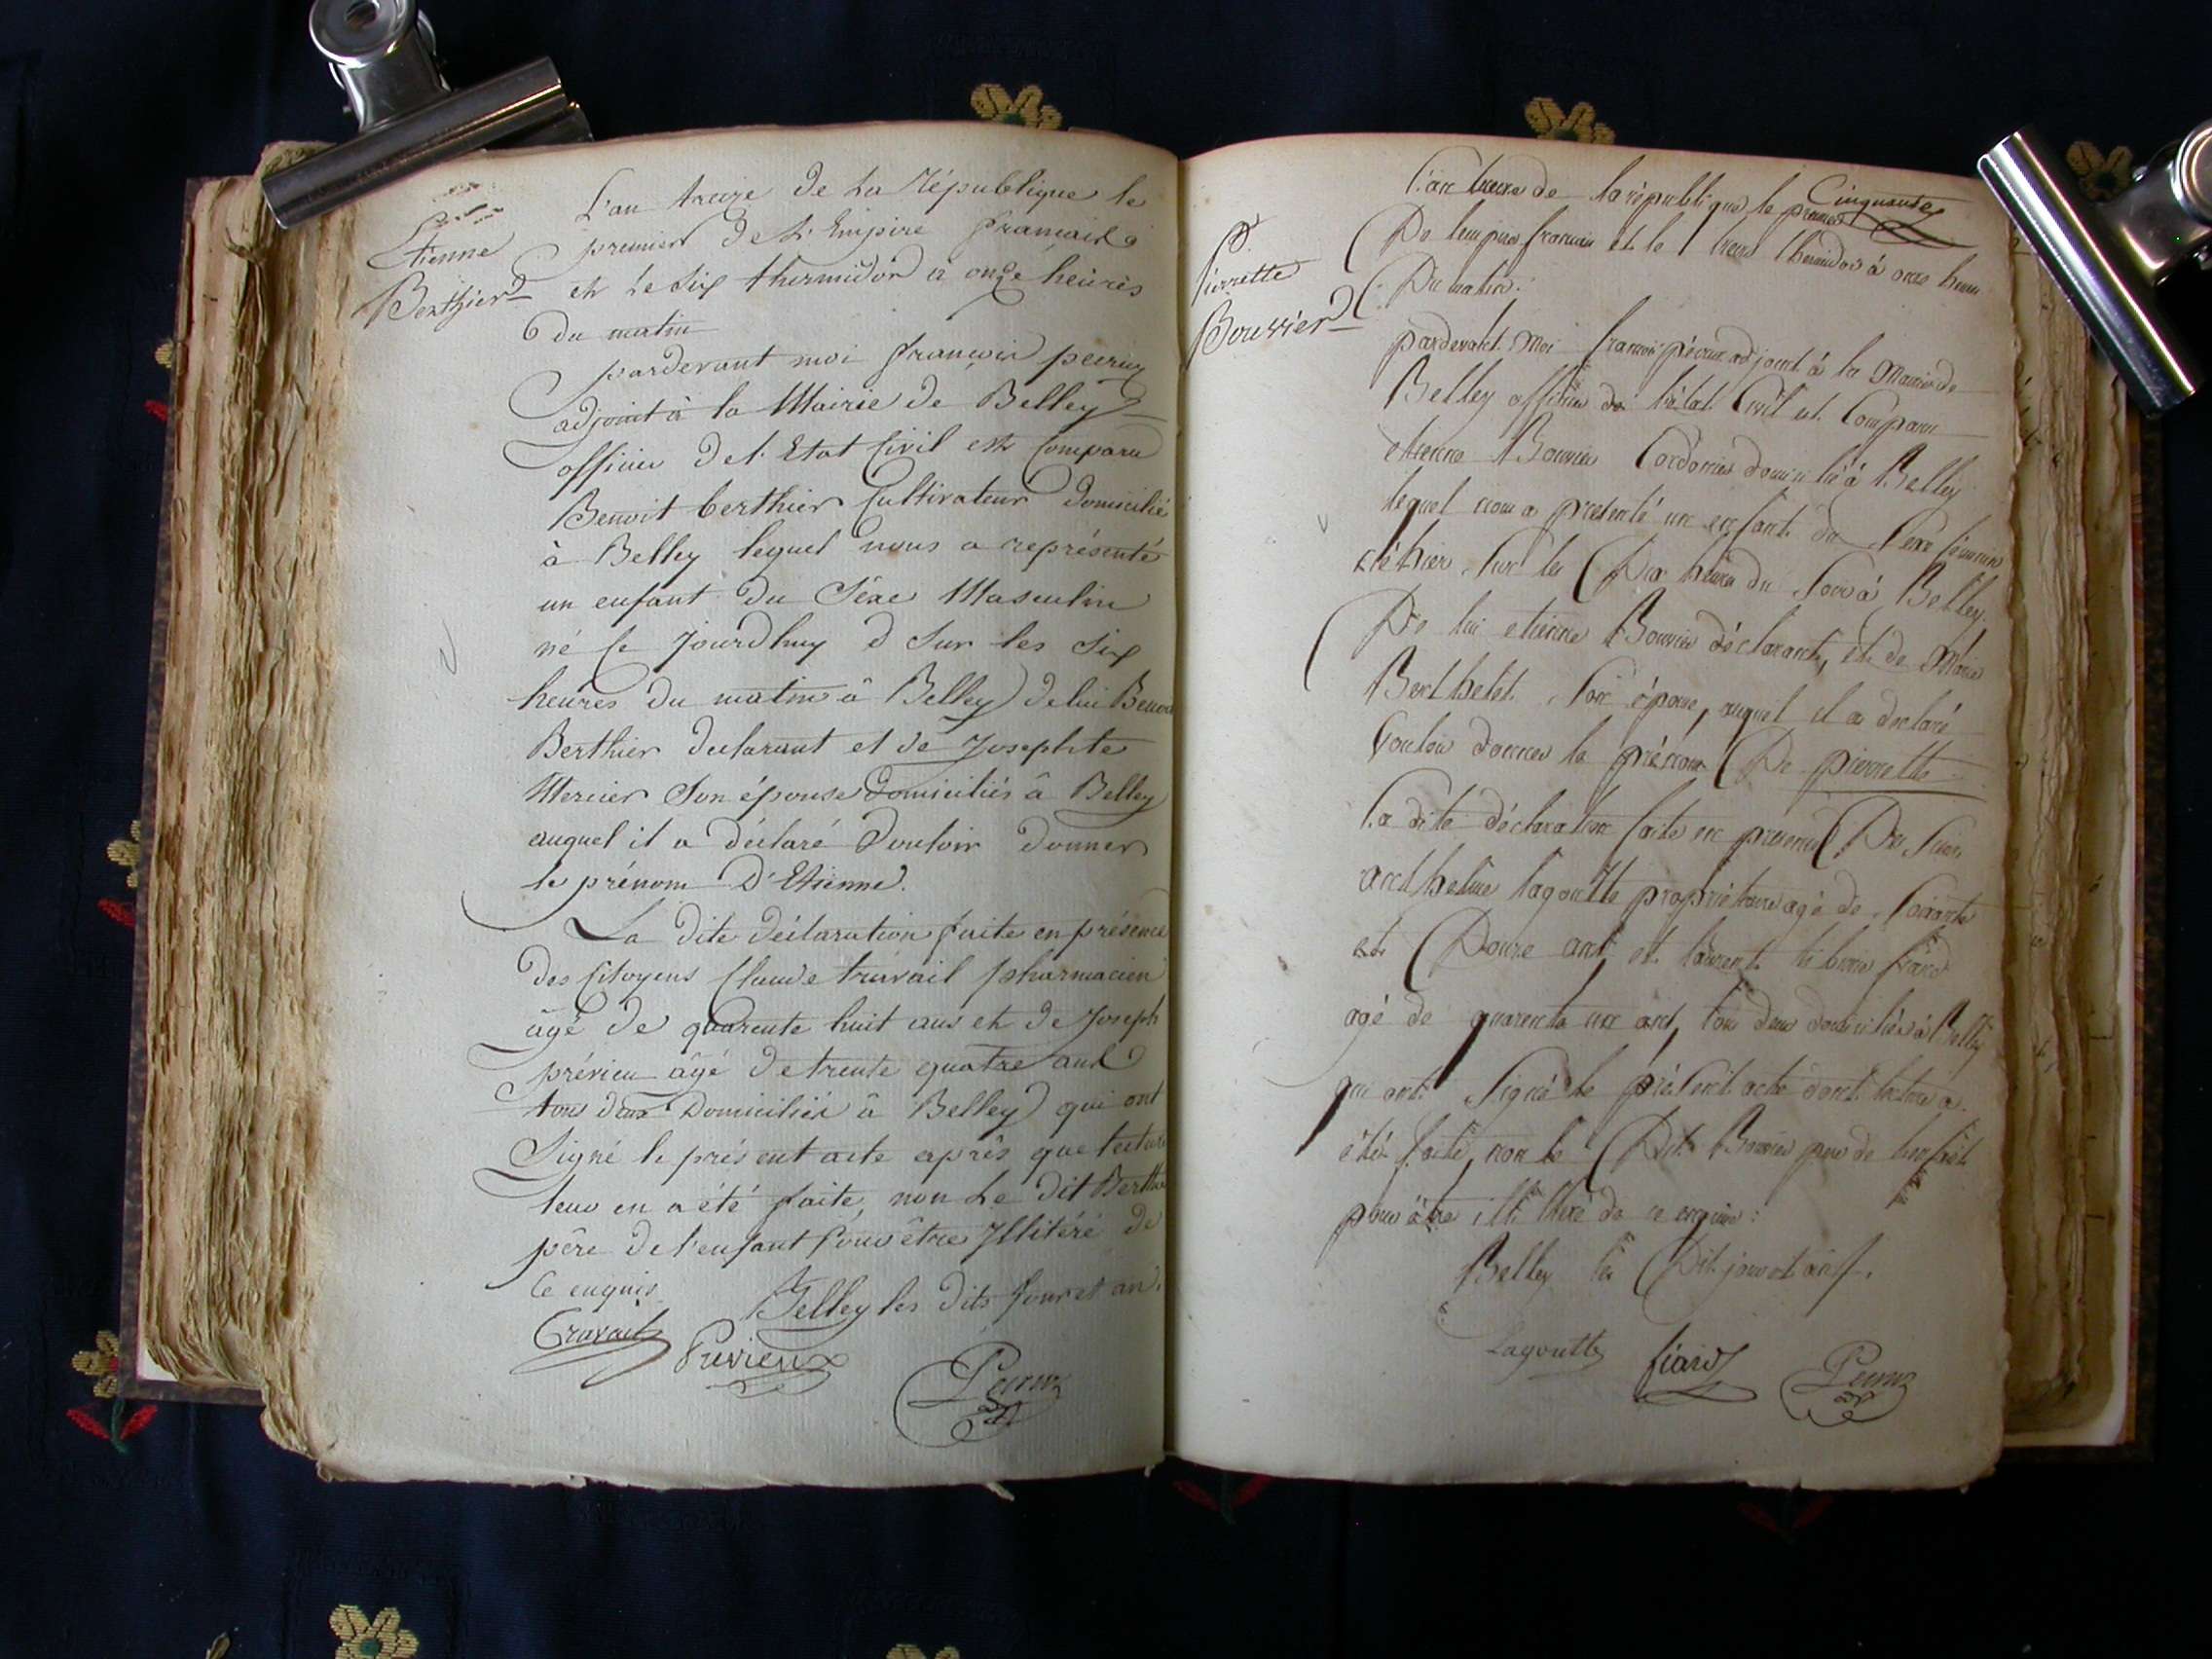 Etienne
Berthier
L'an treize de La République le
premier de L'Empire français
et le six thermidor à onze heures
du matin
pardevant moi françois peeruz
adjoint à la Mairie de Belley
officier de l'Etat Civil est Comparu
Benoit berthier Cultivateur domicilié
à Belley lequel nous a représenté
un enfant du Séxe Masculin
né Ce Jourdhuy d Sur les Six
heures du matin à Belley de lui Benoit
Berthier declarant et de Josephte
Mercier Son épouse domiciliés à Belley
auquel il a déclaré Vouloir donner
le prénom D'Etienne.
La dite déclaration faite en présence
des Citoyens Claude travail pharmacien
âgé de quarente huit ans et de Joseph
prévieu âgé de trente quatre ans
tous deux Domiciliés à Belley qui ont
Signé le présent acte après que lecture
leur en a été faite, non Le dit Berthier
père de l'enfant Pour être Illitéré de
Ce enquis
Belley les dits Jour et an.
Travail
Previeux
Peeruz
Cinquante
Pierrette
Bouvier
L'an treize de la république le premier
De l'empire francais et le treize thermidor à onze heures
Du matin.
pardevant Moi francois péeruz adjoint à la Mairie de
Belley officier de l'état Civil est Comparu
etienne Bouvier Cordonier domicilié à Belley
lequel nous a presenté un enfant du Sexe féminin
né hier Sur les Dix heures du Soir à Belley
De lui etienne Bouvier déclarant, et de Marie
Berthelet Son épouse, auquel il a declaré
Vouloir donner le prénom De pierrette
La dite déclaration faite en présence De Sieurs
anthelme lagoutte propriétaire agé de Soixante
et Douze ans et laurent fiard
agé de quarente un ans, tous deux domiciliés à Belley
qui ont Signé le présent acte dont lecture a
été faite, non le Dit Bouvier pere de l'enfant
pour être illitéré de ce enquis:
Belley les Dit jour et an.
Lagoutte
fiard
Peeruz